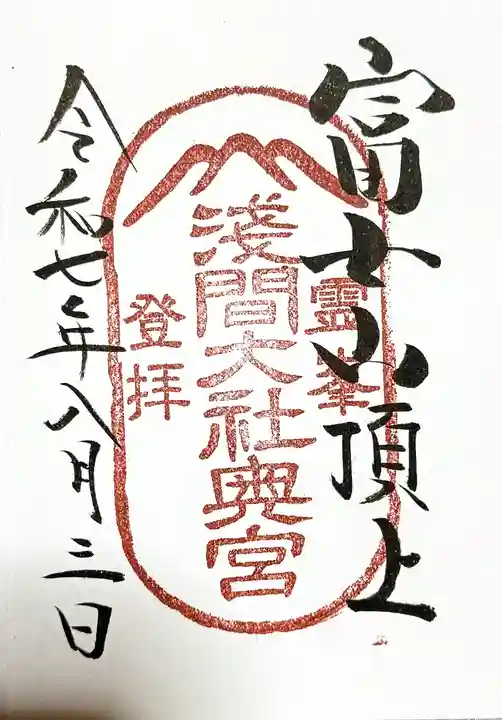 富士山頂上
霊峯
浅間大社奥宮
登拝
令和七年八月三日